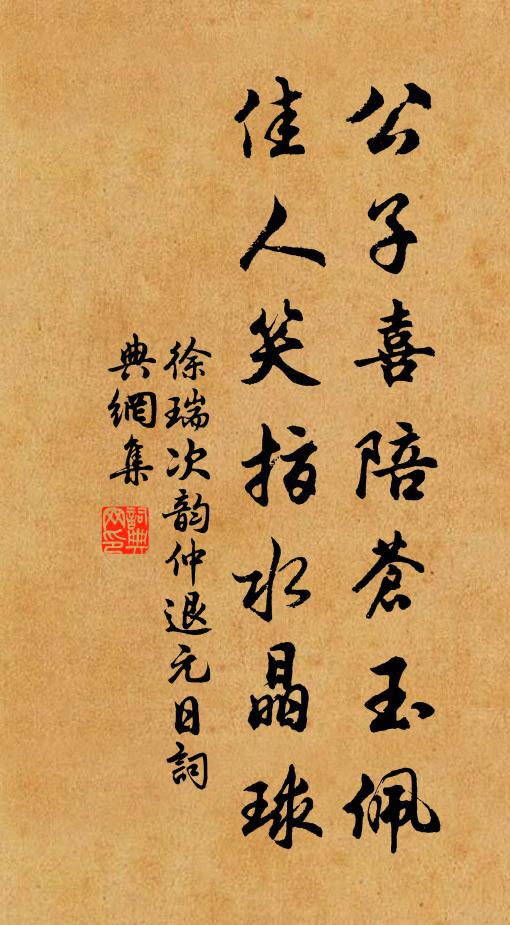 公子喜陪蒼玉佩
佳人笑指水晶球
徐瑞次韵仲退元日詞
典網集
詞典
网印